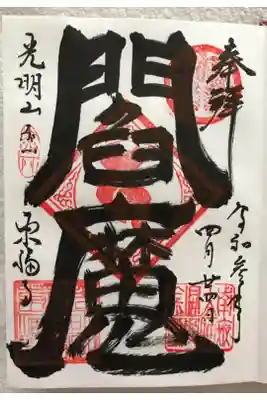 奉拝
令和参年
四月廿四日
閻魔
光明山
東福寺